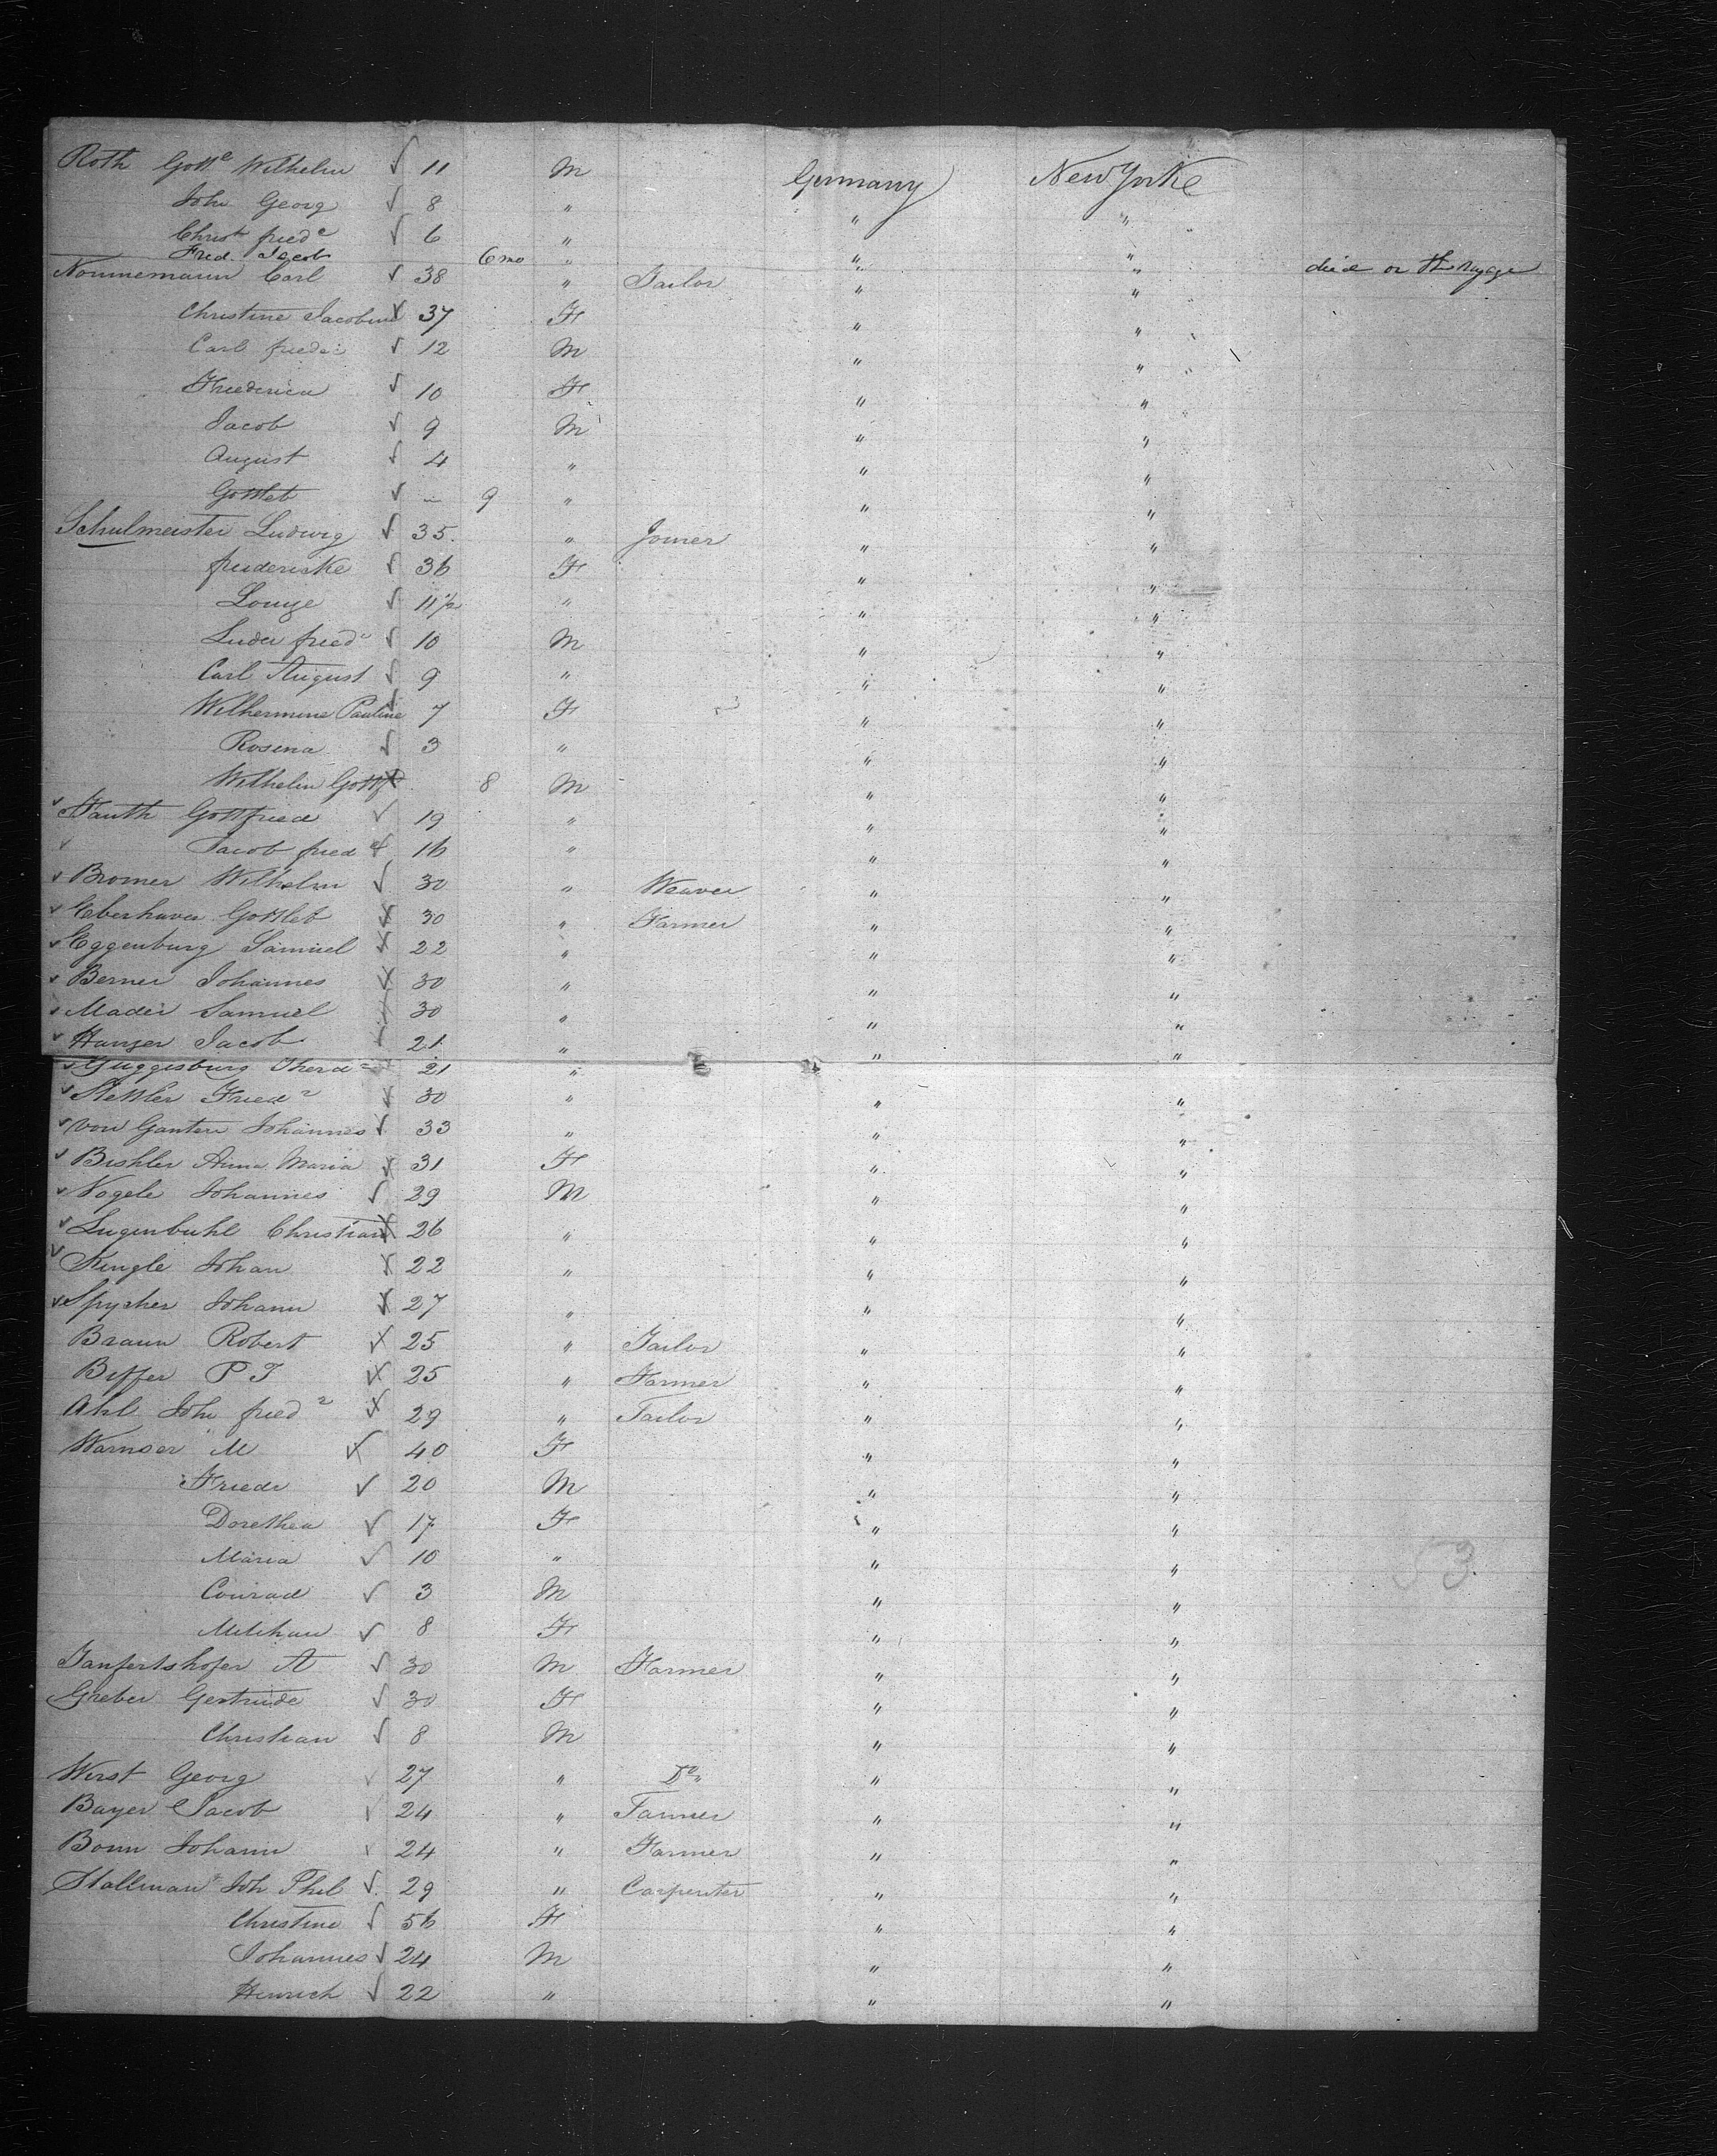 Roth Gott^e Wilhelm √ 11 M Germany New Yorke
Joh. Georg √ 8 " " "
Christ fried^e √ 6 " " "
Fried. Jacob 6 mo " " " died on the voyage
Nonnemann Carl √ 38 " Tailor " "
Christine Jacobine 37 F " "
Carl friedr √ 12 M " "
Friederica √ 10 F " "
Jacob √ 9 M " "
August √ 4 " " "
Gottleb √ – 9 " " "
Schulmeister Ludwig √ 35. " Joiner " "
friederike √ 36 F " "
Louye √ 11 1/2 " " "
fried^r √ 10 M " "
Carl August √ 9 " " "
Wilhermine Pauline 7 F " "
Rosena √ 3 " " "
Wilhelm Gottf 8 M " "
√ Fauth Gottfried √ 19 " " "
√ Jacob fried √ 16 " " "
√ Bromer Wilhelm √ 30 " Weaver " "
√ Gottleb X 30 " Farmer " "
√ Eggenburg Samuel X 22 " " "
√ Berner Johannes X 30 " " "
√ Mader Samuel X 30 " " "
√ Hanzer Jacob √ 21 " " "
√ Guggisburg 21 "
√ Kettler Fried^r √ 30 " " "
√ von Ganten Johannes √ 33 " " "
√ Bishler Anna Maria X 31 F " "
√ Nogele Johannes √ 29 M " "
√ Lugenbuhl Christian X 26 " " "
√ Kingle Johan X 22 " " "
√ Spycher Johann X 27 " " "
Braun Robert X 25 " Tailor " "
Biffer P J X 25 " Farmer " "
Ahl Joh fried^r X 29 " Tailor " "
Warnser M X 40 F " "
Friedr √ 20 M " "
Dorethea √ 17 F " "
Maria √ 10 " " "
Conrad √ 3 M " " 53
√ 8 F " "
A √ 30 M Farmer " "
Greber Gertrude √ 30 F " "
Christian √ 8 M " "
Wirst Georg √ 27 " D^o " "
Bayer Jacob √ 24 " Farmer " "
Bonn Johann √ 24 " Farmer " "
Stallman Joh Phil √ 29 " Carpenter " "
Christine √ 56 F " "
Johannes √ 24 M " "
Heinrich √ 22 " " "